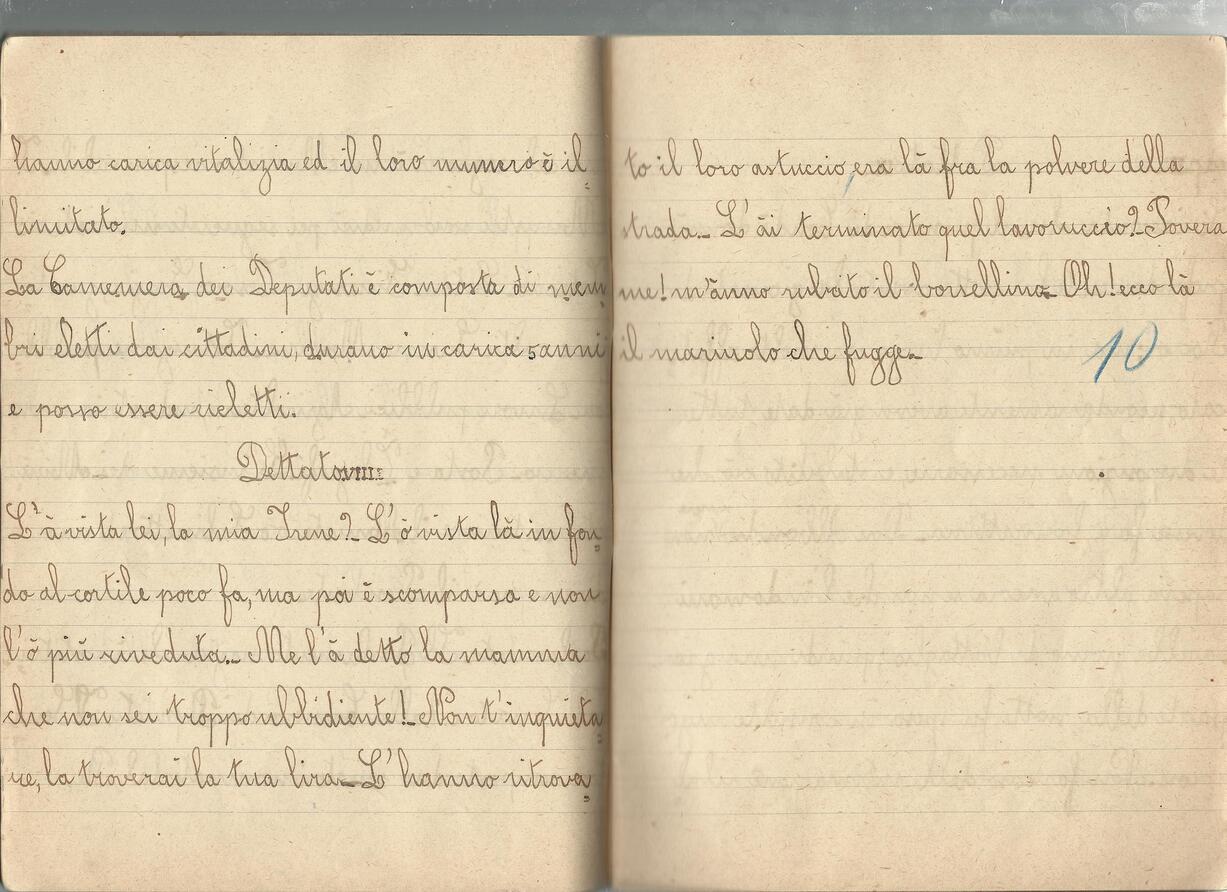 hanno carica vitalizia ed il loro numero è il=
limitato.
La Camemera dei Deputati è composta di mem
bri eletti dai cittadini, durano in carica 5 anni
e posso essere rieletti.
Dettato VIII
L'à vista lei, la mia Irene? - L'ò vista là in fon=
do al cortile poco fa, ma poi è scomparsa e non
l'ò più riveduta. - Me l'à detto la mamma
che non sei troppo ubbidiente! - Non t'inquieta=
re, la troverai la tua lira - L'hanno ritrova=
to il loro astuccio, era là fra la polvere della
strada. - L'ài terminato quel lavoruccio? - Povera
me! m'ànno rubato il borsellino - Oh! ecco là
il mariuolo che fugge -
10